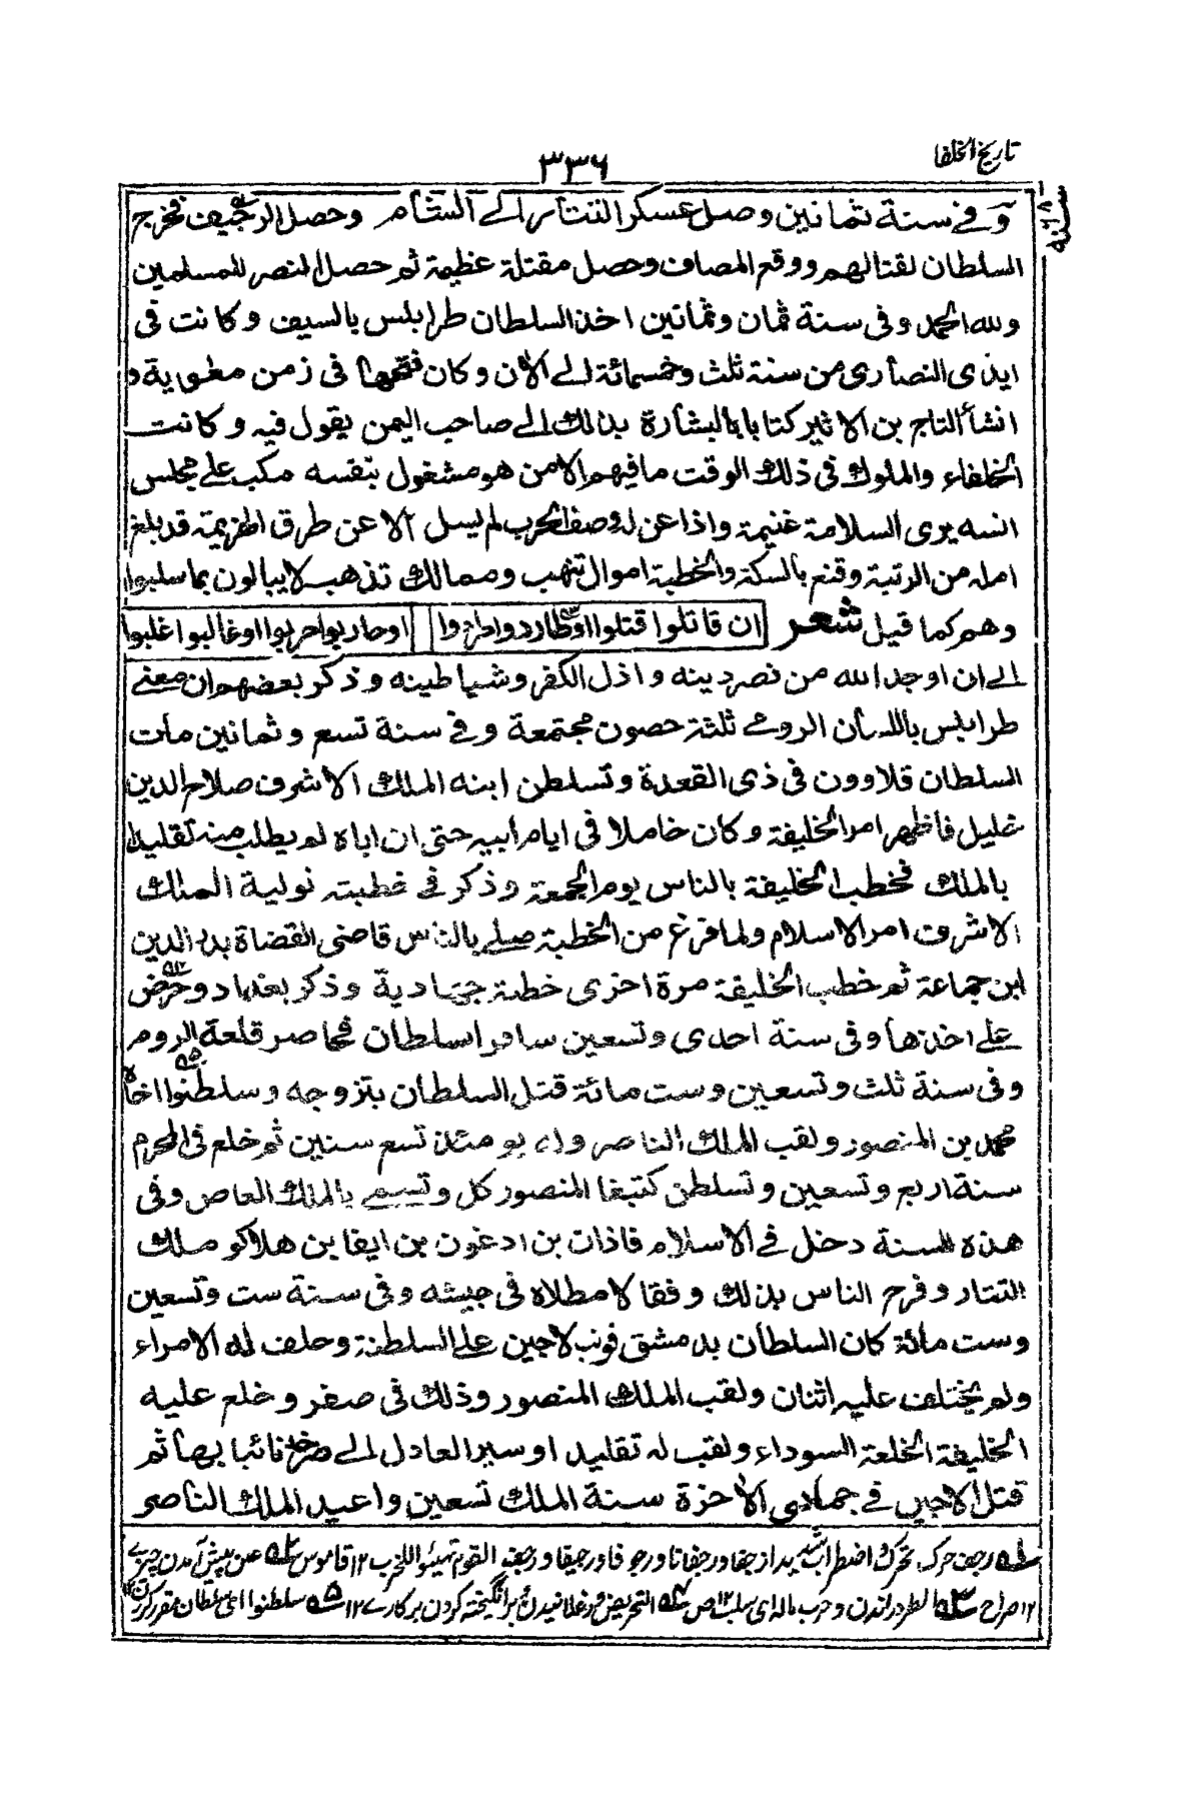 تاريخ الخلفا
٣٣٦
وفى سنة ثمانين وصل عسكر التتار الى الشام وحصل الرجيف فخرج
السلطان لقتالهم ووقع المصاف وحصل مقتلة عظيمة ثم حصل النصر للمسلمين
ولله الحمد وفى سنة ثمان وثمانين اخذ السلطان طرابلس بالسيف وكانت فى
ايدى النصارى من سنة ثلث وخمسمائة الى الآن وكان فتحها فى زمن معوية و
انشأ التاج بن الاثير كتابا بالبشارة بذلك الى صاحب اليمن يقول فيه وكانت
الخلفاء والملوك فى ذلك الوقت ما فيهم الا من هو مشغول بنفسه مكب على مجلس
انسه يرى السلامة غنيمة واذا عن له وصف الحرب لم يسل الا عن طرق الهزيمة قد بلغ
امله من الرتبة وقنع بالسكة والخطبة اموال تنهب وممالك تذهب لا يبالون بما سلبوا
وهم كما قيل شعر ان قاتلوا قتلوا او طاردوا طردوا اوحاربوا حربوا او غالبوا غلبوا
الى ان اوجد الله من نصر دينه واذل الكفر وشياطينه وذكر بعضهم ان معنى
طرابلس باللسان الرومى ثلثة حصون مجتمعة وفى سنة تسع وثمانين مات
السلطان قلاوون فى ذى القعدة وتسلطن ابنه الملك الاشرف صلاح الدين
خليل فاظهر امر الخليفة وكان خاملا فى ايام ابيه حتى ان اباه لم يطلب منه تقليدا
بالملك فخطب الخليفة بالناس يوم الجمعة وذكر فى خطبته تولية الملك
الاشرف امر الاسلام ولما فرغ من الخطبة صلى بالناس قاضى القضاة بدر الدين
ابن جماعة ثم خطب الخليفة مرة اخرى خطبة جهادية وذكر بغداد وحرض
على اخذها وفى سنة احدى وتسعين سافر السلطان فحاصر قلعة الروم
وفى سنة ثلث وتسعين وست مائة قتل السلطان بتروجه وسلطنوا اخاه
محمد بن المنصور ولقب الملك الناصر وله يومئذ تسع سنين ثم خلع فى المحرم
سنة اربع وتسعين وتسلطن كتبغا المنصورى وتسمى بالملك العادل وفى
هذه السنة دخل فى الاسلام قازان بن ارغون بن ابغا بن هلاكو ملك
التتار وفرح الناس بذلك وفشا الاسلام فى جيشه وفى سنة ست وتسعين
وست مائة كان السلطان بدمشق فوثب لاجين على السلطنة وحلف له الامراء
ولم يختلف عليه اثنان ولقب الملك المنصور وذلك فى صفر وخلع عليه
الخليفة الخلعة السوداء وكتب له تقليدا وسير العادل الى صرخد نائبا بها ثم
قتل لاجين فى جمادى الآخرة سنة الملك تسعين واعيد الملك الناصر
رجف حرك تحرك اضطراب شديد القوم تهيئوا للحرب ١٢ قاموس عن پيش آمدن چيزے
١٢ صراح الطرد راندن ١٢ ص التحريض برانگيختن كردن بر كارے ١٢ سلطنوا اى سلطان مقرر كردن